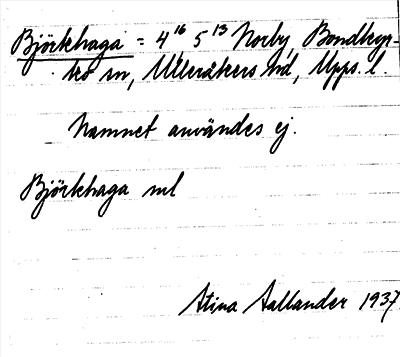 Björkhaga = 4¹⁶, 5¹³ Norby, Bondkyr-
ko sn, Ulleråkers hd, Upps. l.
Namnet användes ej.
Björkhaga ml
Stina Aallander 1937